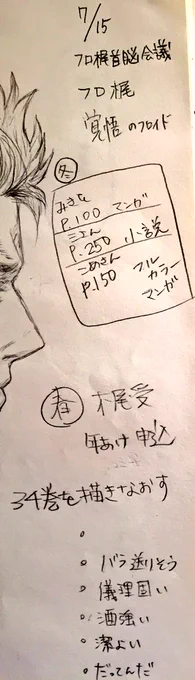 7/15
フロ梶首脳会議
フロ梶
覚悟のフロイド
夕
みきな
P.100 マンガ
ミエん
P.250 小説
こめさん
P.150 フルカラーマンガ
春 梶受
年あけ申込
34巻を描きなおす
・
・バラ送りそう
・儀理固い
・酒強い
・潔よい
・だってんだ